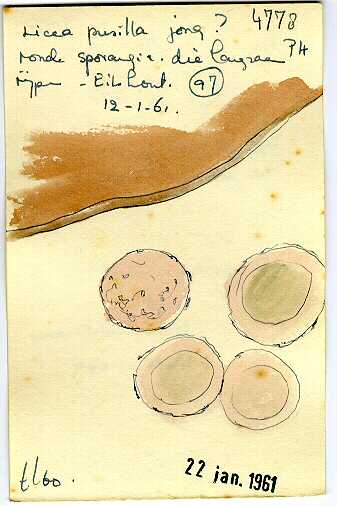 Licea pusilla jong? 4778
ronde sporangia. die langzaam P4
rijpen - Eikhout. 97
12-1-61.
Elbo.
22 jan. 1961